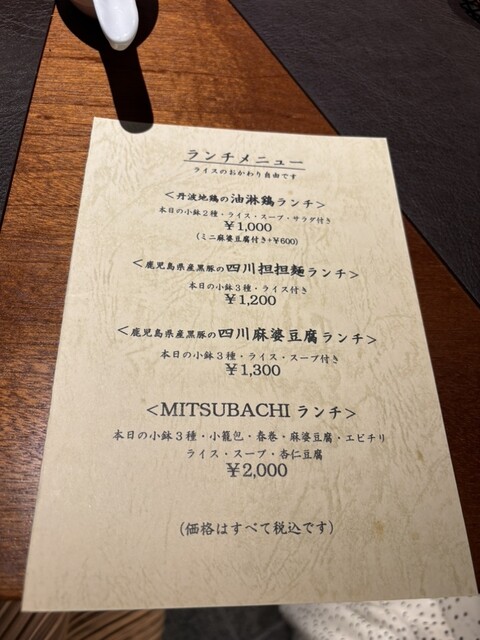 ランチメニュー
ライスのおかわり自由です
<丹波地鶏の油淋鶏ランチ>
本日の小鉢2種・ライス・スープ・サラダ付き
¥1,000
(ミニ麻婆豆腐付き+¥600)
<鹿児島県産黒豚の四川担担麺ランチ>
本日の小鉢3種・ライス付き
¥1,200
<鹿児島県産黒豚の四川麻婆豆腐ランチ>
本日の小鉢3種・ライス・スープ付き
¥1,300
<MITSUBACHI ランチ>
本日の小鉢3種・小籠包・春巻・麻婆豆腐・エビチリ
ライス・スープ・杏仁豆腐
¥2,000
(価格はすべて税込です)